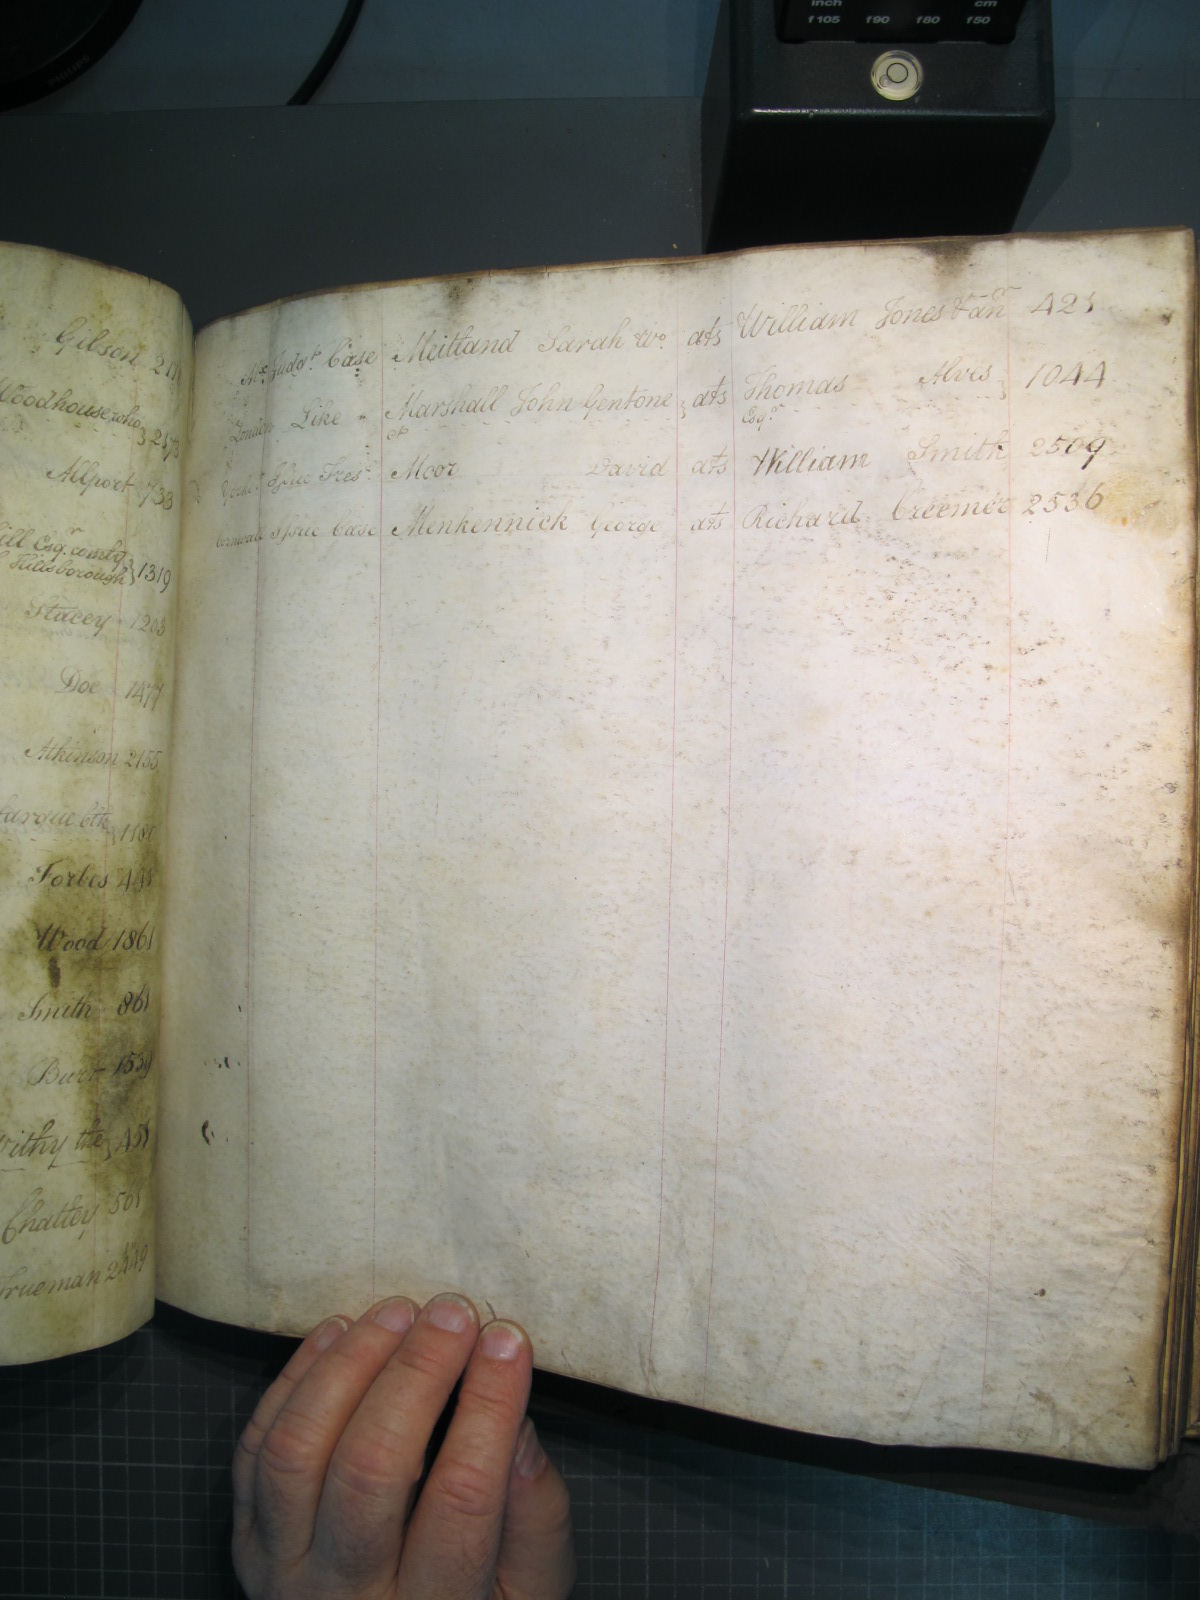 inch cm
f105 f90 f80 f50
PHILIPS
Gilson
Woodhouse who
Allport 733
Esqr. comly 1319
Hillsborough
Stacey 1203
Doe 1477
Atkinson 2155
Forbes
Wood 1861
Smith 861
Burt 1539
withy the
Chattey 501
Trueman
Judgt. Case Meitland Sarah Wo. ats William Jones & anr 421
London Like " Marshall John Gentone } ats Thomas Alves } 1044
Esqr
Issue Tres. Moor David ats William Smith 2509
Cornwall Issue Case Menkennick George ats Richard Creemer 2536